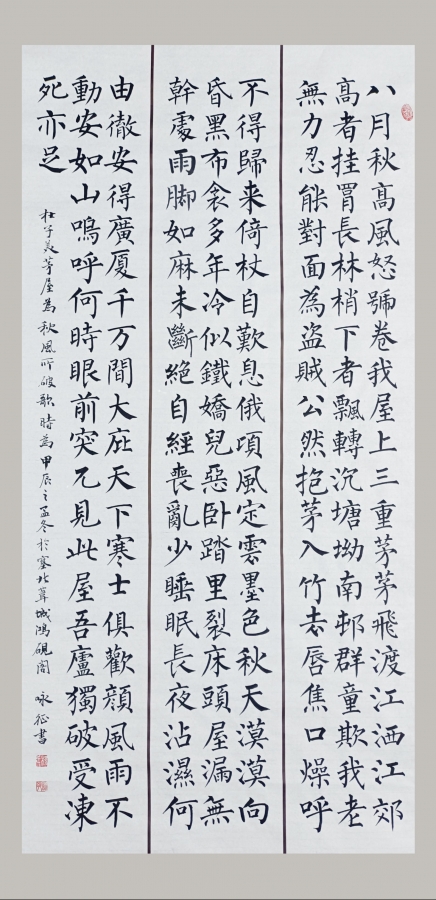 八月秋高風怒號卷我屋上三重茅茅飛渡江洒江郊
高者挂罥長林梢下者飄轉沉塘坳南邨群童欺我老
無力忍能對面為盜賊公然抱茅入竹去唇焦口燥呼
不得歸来倚杖自歎息俄頃風定雲墨色秋天漠漠向
昏黑布衾多年冷似鐵嬌兒惡卧踏里裂床頭屋漏無
幹處雨脚如麻未斷絕自經喪亂少睡眠長夜沾濕何
由徹安得廣厦千万間大庇天下寒士俱歡顔風雨不
動安如山嗚呼何時眼前突兀見此屋吾廬獨破受凍
死亦足
杜子美茅屋為秋風所破歌時為甲辰之孟冬於塞北葺城鴻硯閣 咏征書